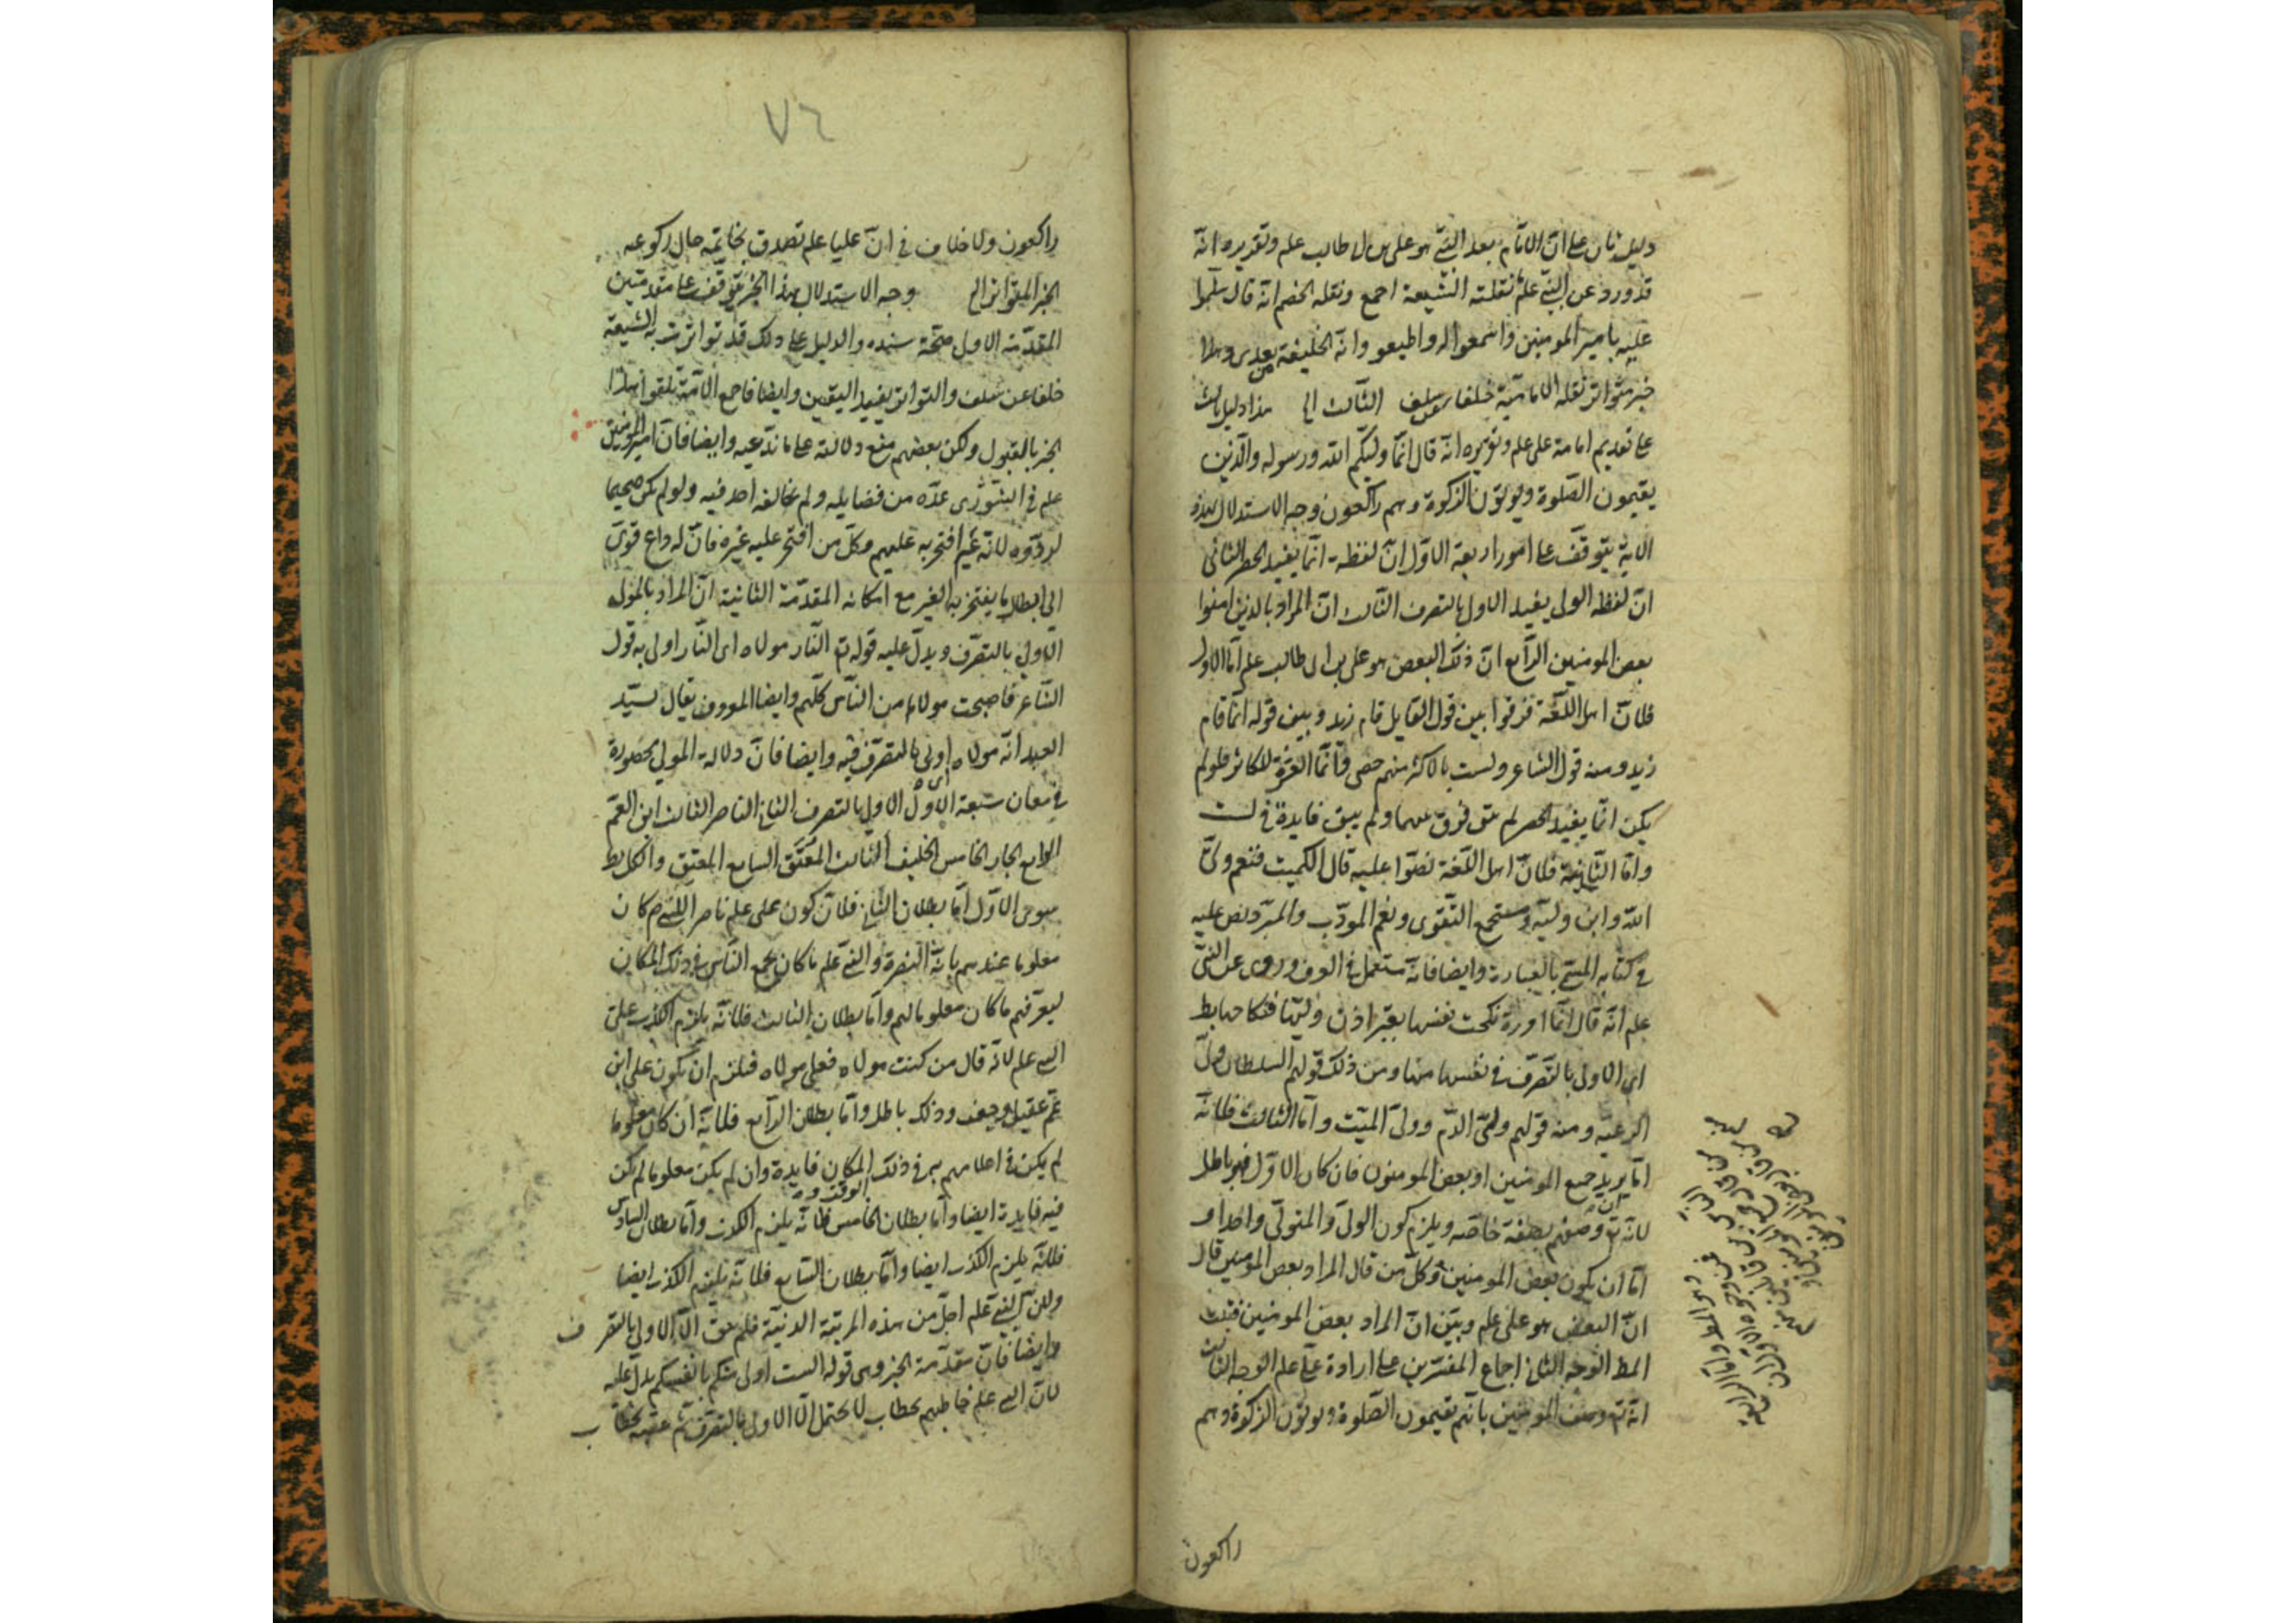 دليل ثان على ان الامام بعد النبي هو علي بن ابي طالب علم وتقديره انه
قد ورد عن النبي علم نقلته الشيعة اجمع ونقله الخصم انه قال سلموا
عليه بامير المومنين واسمعوا له واطيعو وانه الخليفة من بعدي وهذا
خبر متواتر نقله الامامية خلفا عن سلف الثالث الخ هذا دليل ثالث
على تقديم امامة علي علم وتقريره انه قال انما وليكم الله ورسوله والذين
يقيمون الصلوة ويؤتون الزكوة وهم راكعون وجه الاستدلال بهذه
الاية يتوقف على امور اربعة الاول ان لفظة انما يفيد الحصر الثاني
ان لفظه الولي يفيد الاولى بالتصرف الثالث ان المراد بالذين امنوا
بعض المومنين الرابع ان ذلك البعض هو علي بن ابي طالب علم اما الاول
فلان اهل اللغة فرقوا بين قول القايل قام زيد وبين قوله انما قام
زيد ومنه قول الشاعر ولست بالاكثر منهم حصى وانما العزة للكاثر فلو لم
يكن انما يفيد الحصر لم يبق فرق بينهما ولم يبق فايدة في لست
واما الثانية فلان اهل اللغة نصوا عليه قال الكميت فنعم ولي
الله وابن وليه ومنتجع التقوى ونعم المودب والمبرد نص عليه
في كتابه المسمى بالعبارة وايضا فانه مستعمل في العرف وروى عن النبي
علم انه قال ايما امرءة نكحت نفسها بغير اذن وليها فنكاحها بط
اي الاولى بالتصرف في نفسها منها ومن ذلك قولهم السلطان ولي
الرعيه ومنه قولهم ولي الدم وولي الميت واما الثالث فلانه
اما ان يريد جميع المومنين او بعض المومنون فان كان الاول فهو باطل
لانه تع وصفهم بصفة خاصه ويلزم كون الولي والمتولي واحدا و
اما ان يكون بعض المومنين وكل من قال المراد بعض المومنين قال
ان البعض هو علي علم وبين ان المراد بعض المومنين فثبت
المط الوجه الثاني اجماع المفسرين على ارادة علي علم الوجه الثالث
انه تع وصف المومنين بانهم يقيمون الصلوة ويؤتون الزكوة وهم
راكعون
٧٦
راكعون ولا خلاف في ان عليا علم تصدق بخاتمه حال ركوعه
الخبر المتواتر الخ وجه الاستدلال بهذا الخبر يتوقف على مقدمتين
المقدمة الاولى صحة سنده والدليل على ذلك قد تواترت به الشيعة
خلفا عن سلف والتواتر يفيد اليقين وايضا فاجمع الامة تلقوا هذا
الخبر بالقبول ولكن بعضهم منع دلالته على ما ندعيه وايضا فان امير المومنين
علم في الشورى عده من فضايله ولم يخالفه احد فيه ولو لم يكن صحيحا
لردوه لانه علم افتخر به عليهم وكل من افتخر عليه غيره فان له داع قوي
الى ابطال ما يفتخر به الغير مع امكانه المقدمة الثانية ان المراد بالمولى
الاولى بالتصرف ويدل عليه قوله تع النار مولاه اي النار اولى به قول
الشاعر فاصبحت مولاها من الناس كلهم وايضا المعروف يقال لسيد
العبد انه مولاه اي اولى بالتصرف فيه وايضا فان دلالة المولى محصورة
في معان سبعة الاول الاولى بالتصرف الثاني الناصر الثالث ابن العم
الرابع الجار الخامس الحليف السادس المعتَق السابع المعتِق والكل بط
سوى الاول اما بطلان الثاني فلان كون علي علم ناصرا للنبي ص كان
معلوما عندهم بانه النصرة والنبي علم ما كان يجمع الناس في ذلك المكان
ليعرفهم ما كان معلوما لهم واما بطلان الثالث فلانه يلزم الكذب على
النبي علم لانه قال من كنت مولاه فعلي مولاه فيلزم ان يكون علي ابن
عم عقيل وجعفر وذلك باطل واما بطلان الرابع فلانه ان كان معلوما
لم يكن في اعلامهم به في ذلك المكان فايدة وان لم يكن معلوما لم يكن
فيه فايدة ايضا واما بطلان الخامس فلانه يلزم الكذب واما بطلان السادس
فلانه يلزم الكذب ايضا واما بطلان السابع فلانه يلزم الكذب ايضا
ولان النبي علم اجل من هذه المرتبة الدنية فلم يبق الا الاولى بالتصرف
وايضا فان مقدمة الخبر وهي قوله الست اولى منكم بانفسكم يدل عليه
لان النبي علم خاطبهم بخطاب لا يحتمل الا الاولى بالتصرف ثم عقبه بخطاب